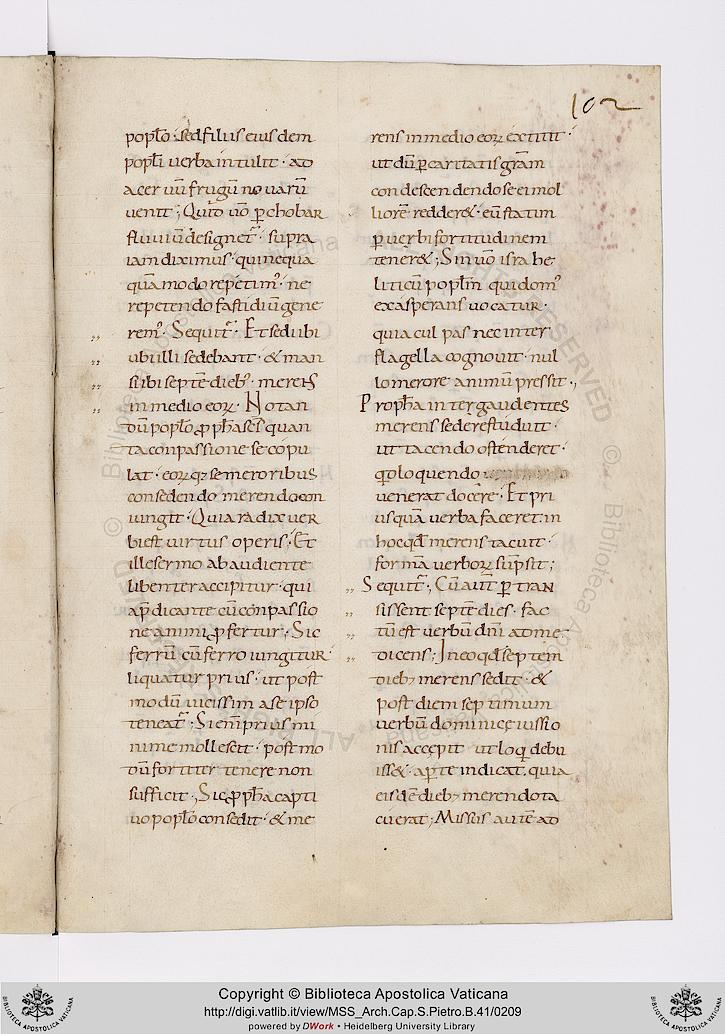 102
popłō · sed filius eiusdem
popłi uerba intulit · ad
aceruū frugū nouarū
uenit ; Quid uō p̲ chobar
fluuiū designet᷑ · supra
iam diximus · qui nequa
quā modo repetim᷒ · ne
repetendo fastidiū gene
rem᷒ · Sequit᷑ · Et sedi ubi
ubi illi sedebant · & man
si ibi septē dieb᷒ · merens
in medio eoꝝ · Notan
dū popłō ꝓphā sēs quan
ta conpassione se copu
lat · eoꝝq; se meroribus
consedendo merendo con
iungit · Quia radix uer
bi est uirtus operis · Et
ille sermo ab audiente
libenter accipitur · qui
a p̲dicante cū conpassio
ne animi ꝓfertur ; Sic
ferrū cū ferro iungitur
liquatur prius · ut post
modū uicissim a se ipso
teneat᷑ ; Si enī prius mi
nime mollescit · post mo
dū fortiter tenere non
sufficit ; Sic ꝓphā capti
uo popłō consedit · & me
rens in medio eoꝝ extitit ·
ut dū p̲ caritatis grām
condescendendo se ei mol
liorē redder& · eū statim
p̲ uerbi fortitudinem
tener& ; Sin uō israhe
liticū popłm qui dom᷒
exasperans uocatur ·
quia culpas nec inter
flagella cognouit · nul
lo merore animū pressit ·,
Prophā inter gaudentes
merens sedere studuit ·
ut tacendo ostenderet ·
qd̄ loquendo
uenerat docēre · Et pri
usquā uerba faceret · in
hoc qd̄ merens tacuit ·
formā uerboꝝ sūpsit ;
Sequit᷑ ; Cū aut̄ p̲tran
sissent septē dies · fac
tū est uerbū dn̄i ad me ·
dicens ; In eo qd̄ septem
dieb; merens sedit · &
post diem septimum
uerbū dominicę iussio
nis accępit ut loqui debu
iss& · ap̲te indicat · quia
eisdē dieb; merendo ta
cuerat ; Missus autē ad
Copyright © Biblioteca Apostolica Vaticana
http://digi.vatlib.it/view/MSS_Arch.Cap.S.Pietro.B.41/0209
powered by DWork • Heidelberg University Library